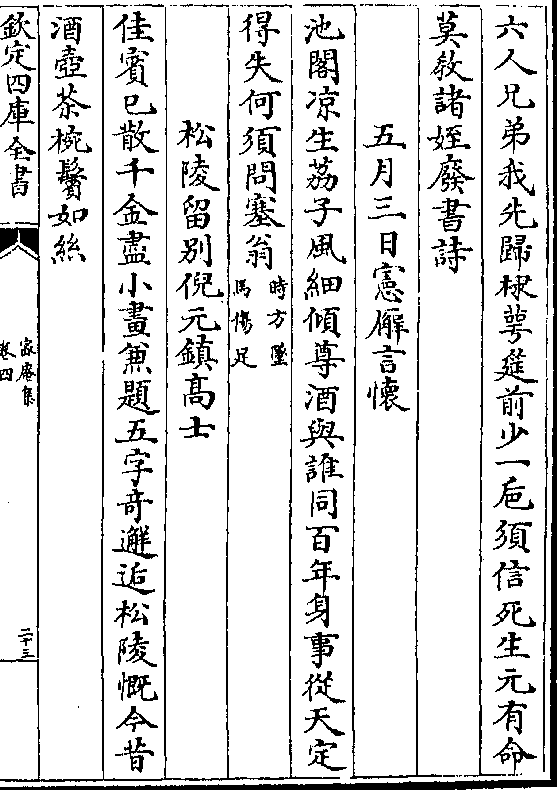 六人兄弟我先歸棣萼筵前少一巵須信死生元有命
莫敎諸姪廢書詩
五月三日憲廨言懷
池閣凉生荔子風細傾尊酒與誰同百年身事從天定
得失何須問塞翁時方墜馬傷足
松陵留别倪元鎮髙士
佳賓已散千金盡小畫兼題五字竒邂逅松陵慨今昔
酒壺茶椀鬢如絲
欽定四庫全書
卷四
二十三